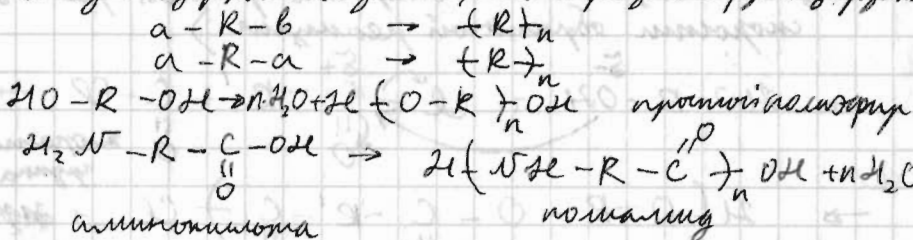 a – R – в → (R)n
a – R – a → (R)n
HO – R – OH → n H₂O + H (O – R)n OH простой полиэфир
H₂N – R – C – OH → H (NH – R – C )n OH + nH₂O
O O
аминокислота полиамид